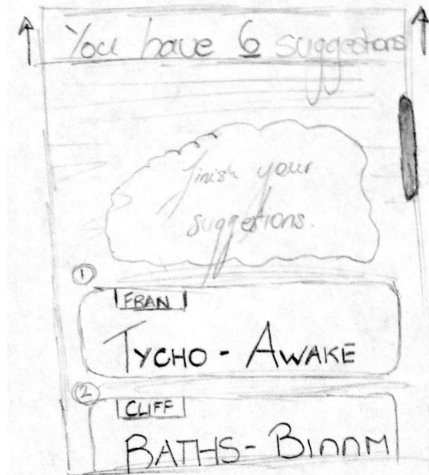 You have 6 suggestions
finish your
suggestions.
1
FRAN
TYCHO - AWAKE
2
CLIFF
BATHS - BLOOM